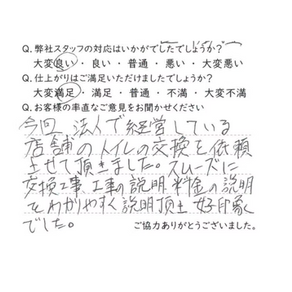 Q. 弊社スタッフの対応はいかがでしたでしょうか?
大変良い・良い・普通・悪い・大変悪い
Q. 仕上がりはご満足いただけましたでしょうか?
大変満足・満足・普通・不満・大変不満
Q. お客様の率直なご意見をお聞かせください
今回、法人で経営している
店舗のトイレの交換を依頼
させて頂きました。スムーズに
交換工事、工事の説明、料金の説明
をわかりやすく説明頂き 好印象
でした。
ご協力ありがとうございました。